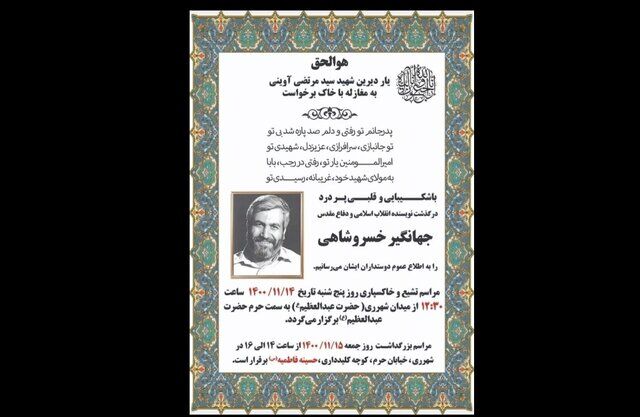 هوالحق
یار دیرین شهید سید مرتضی آوینی
به مغازله با خاک برخواست
پدرجانم تو رفتی و دلم صد پاره شد بی تو
تو جانبازی، سرافرازی، عزیزدل، شهیدی تو
امیرالمومنین یار تو، رفتی در رجب، بابا
به مولای شهید خود، غریبانه، رسیدی تو
باشکیبایی و قلبی پر درد
درگذشت نویسنده انقلاب اسلامی و دفاع مقدس
جهانگیر خسروشاهی
را به اطلاع عموم دوستداران ایشان می‌رسانیم.
مراسم تشیع و خاکسپاری روز پنج شنبه تاریخ ۱۴۰۰/۱۱/۱۴ ساعت
۱۲:۳۰ از میدان شهرری( حضرت عبدالعظیم(ع) به سمت حرم حضرت
عبدالعظیم(ع) برگزار می‌گردد.
مراسم بزرگداشت روز جمعه ۱۴۰۰/۱۱/۱۵ از ساعت ۱۴ الی ۱۶ در
شهرری، خیابان حرم، کوچه کلیدداری، حسینه فاطمیه(س) برقرار است.